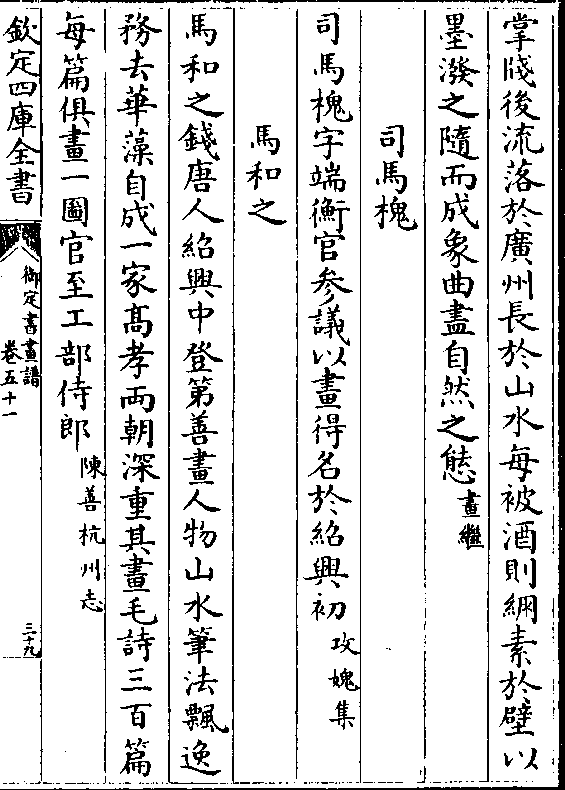 掌牋後流落於廣州長於山水每被酒則綳素於壁以
墨潑之隨而成象曲盡自然之態畫繼
司馬槐
司馬槐字端衡官参議以畫得名於紹興初攻媿集
馬和之
馬和之錢唐人紹興中登第善畫人物山水筆法飄逸
務去華藻自成一家髙孝兩朝深重其畫毛詩三百篇
每篇俱畫一圖官至工部侍郎陳善杭州志
欽定四庫全書
御定書畫譜
卷五十一
三十九